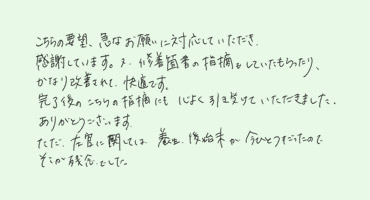 こちらの要望、急なお願いに対応していただき、
感謝しています。又、修善箇者の指摘もしていたもらったり、
かなり改善されて、快適です。
完了後のこちらの指摘にも 心よく引き受けていただきました。
ありがとうございます。
ただ、左官に関しては 養生、後始末が 今ひとつだったので
そこが残念でした。